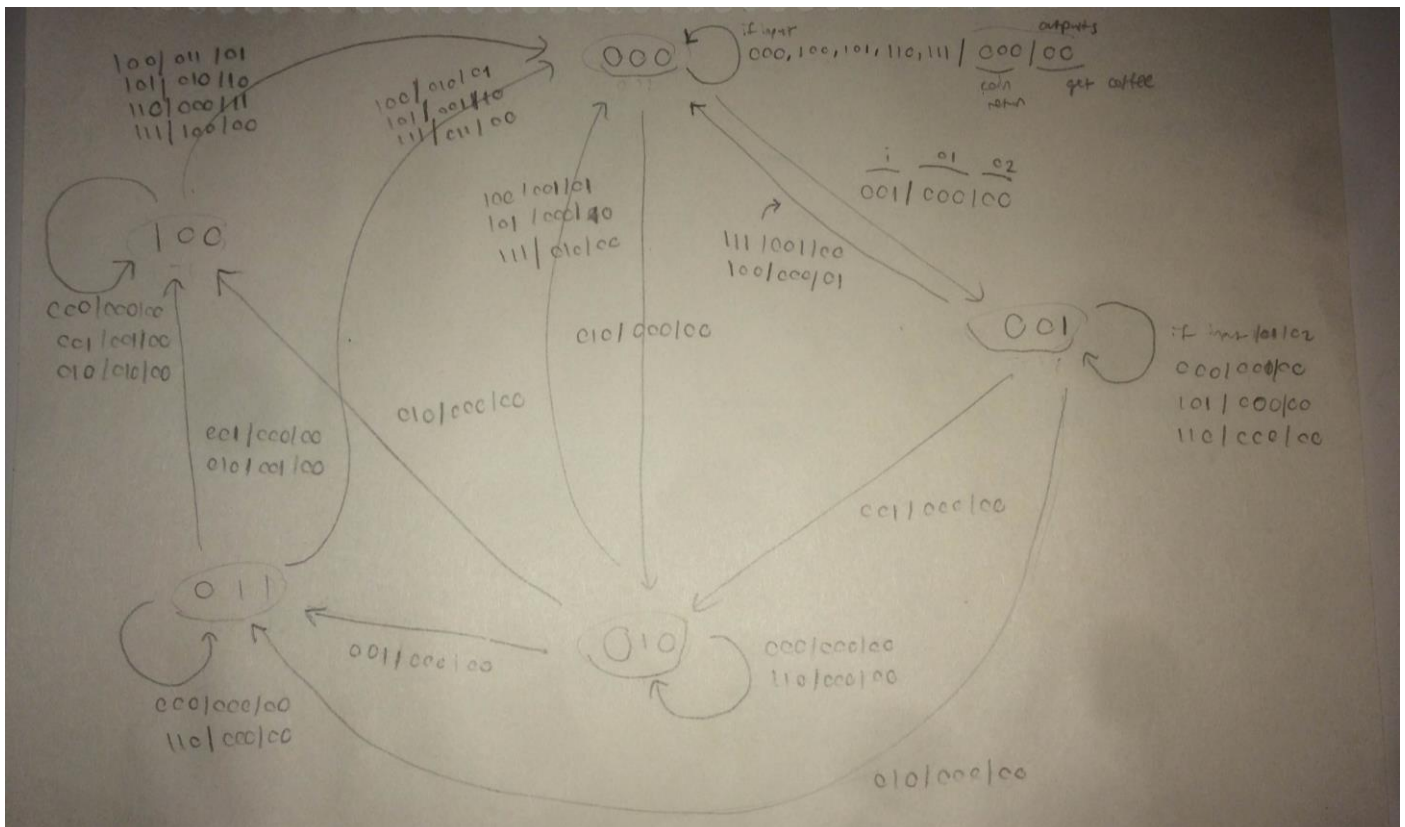 100/011/101
101/010/10
110/000/11
111/100/00
100/010/01
101/001/10
111/011/00
000
if input
000, 100, 101, 110, 111 / 000/00
outputs
coin
return
get coffee
i o1 o2
001/000/00
100/001/01
101/000/10
111/010/00
111/001/00
100/000/01
100
000/000/00
001/001/00
010/010/00
010/000/00
001
if /o1/o2
000/000/00
101/000/00
110/000/00
010/000/00
001/000/00
010/001/00
001/000/00
011
001/000/00
010
000/000/00
110/000/00
000/000/00
110/000/00
010/000/00